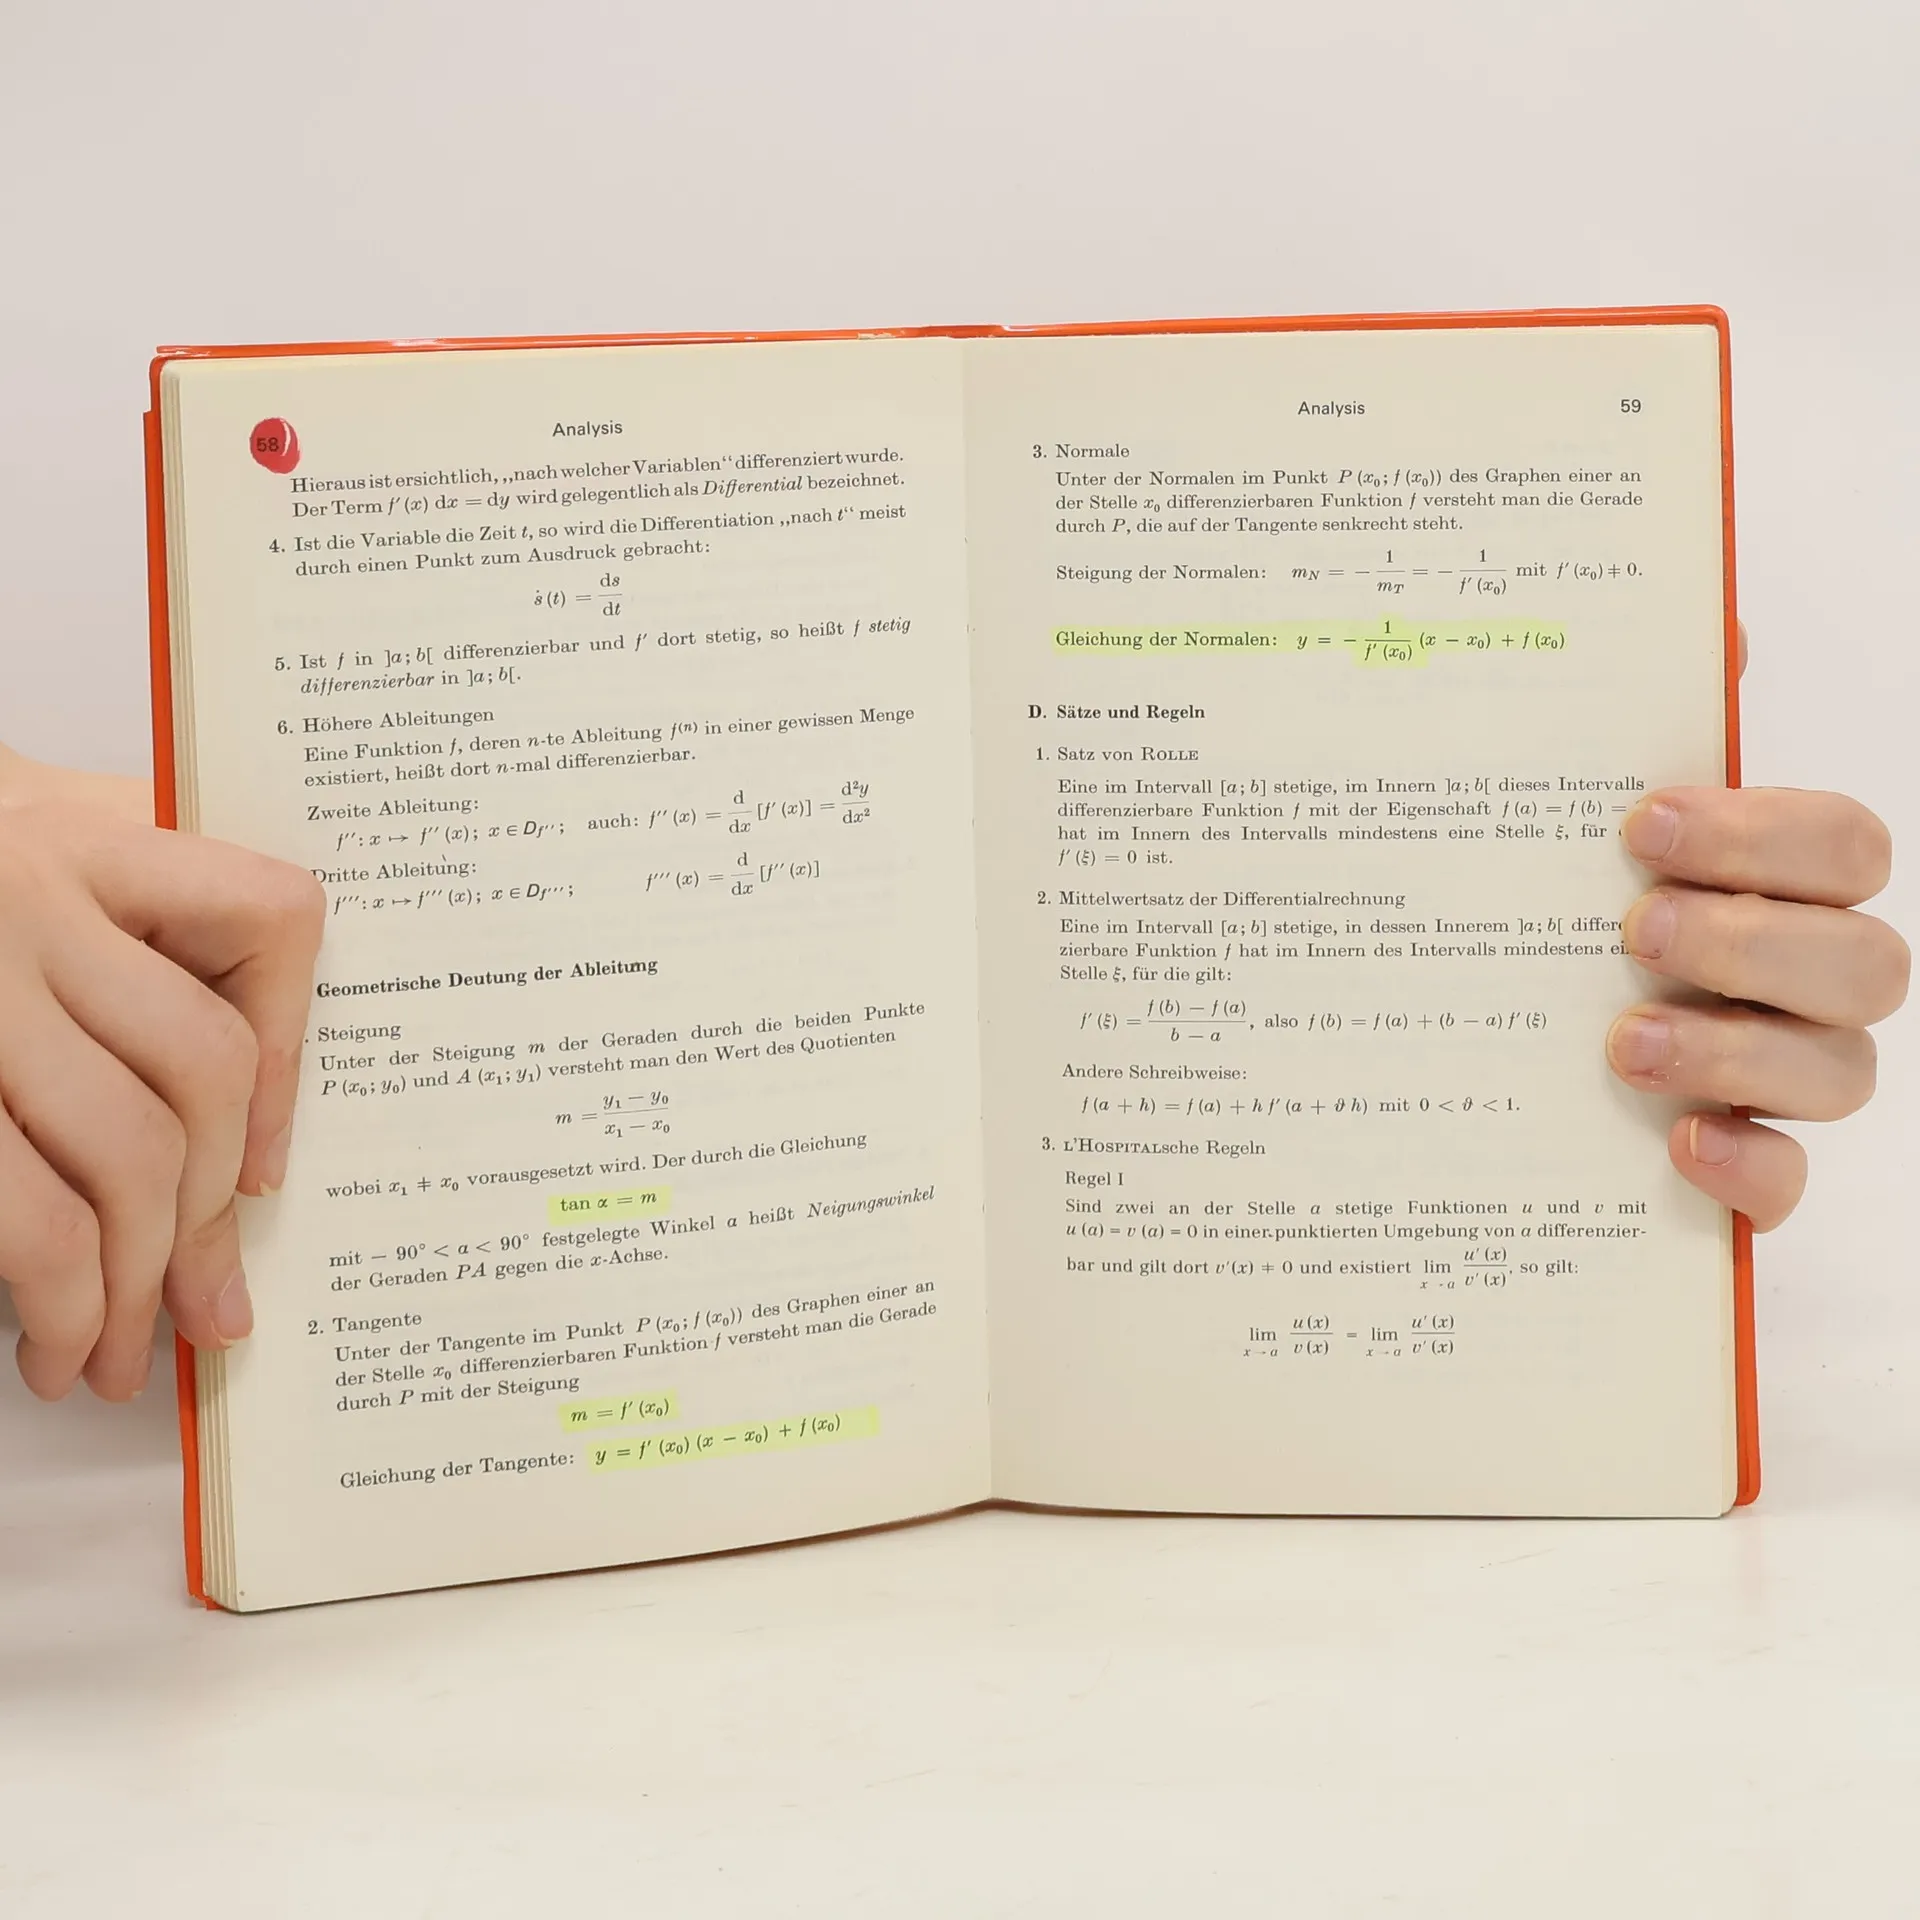 58
Analysis
Hieraus ist ersichtlich, „nach welcher Variablen“ differenziert wurde.
Der Term f′ (x) dx = dy wird gelegentlich als Differential bezeichnet.
4. Ist die Variable die Zeit t, so wird die Differentiation „nach t“ meist
durch einen Punkt zum Ausdruck gebracht:
ṡ (t) = ds/dt
5. Ist f in ]a; b[ differenzierbar und f′ dort stetig, so heißt f stetig
differenzierbar in ]a; b[.
6. Höhere Ableitungen
Eine Funktion f, deren n-te Ableitung f⁽ⁿ⁾ in einer gewissen Menge
existiert, heißt dort n-mal differenzierbar.
Zweite Ableitung:
f′′: x ↦ f′′ (x); x ∈ D_f′′; auch: f′′ (x) = d/dx [f′ (x)] = d²y/dx²
Dritte Ableitung:
f′′′: x ↦ f′′′ (x); x ∈ D_f′′′; f′′′ (x) = d/dx [f′′ (x)]
Geometrische Deutung der Ableitung
. Steigung
Unter der Steigung m der Geraden durch die beiden Punkte
P (x₀; y₀) und A (x₁; y₁) versteht man den Wert des Quotienten
m = (y₁ − y₀)/(x₁ − x₀)
wobei x₁ ≠ x₀ vorausgesetzt wird. Der durch die Gleichung
tan α = m
mit − 90° < α < 90° festgelegte Winkel α heißt Neigungswinkel
der Geraden PA gegen die x-Achse.
2. Tangente
Unter der Tangente im Punkt P (x₀; f (x₀)) des Graphen einer an
der Stelle x₀ differenzierbaren Funktion f versteht man die Gerade
durch P mit der Steigung
m = f′ (x₀)
Gleichung der Tangente: y = f′ (x₀) (x − x₀) + f (x₀)
Analysis
59
3. Normale
Unter der Normalen im Punkt P (x₀; f (x₀)) des Graphen einer an
der Stelle x₀ differenzierbaren Funktion f versteht man die Gerade
durch P, die auf der Tangente senkrecht steht.
Steigung der Normalen: m_N = − 1/m_T = − 1/f′ (x₀) mit f′ (x₀) ≠ 0.
Gleichung der Normalen: y = − 1/f′ (x₀) (x − x₀) + f (x₀)
D. Sätze und Regeln
1. Satz von ROLLE
Eine im Intervall [a; b] stetige, im Innern ]a; b[ dieses Intervalls
differenzierbare Funktion f mit der Eigenschaft f (a) = f (b) =
hat im Innern des Intervalls mindestens eine Stelle ξ, für
f′ (ξ) = 0 ist.
2. Mittelwertsatz der Differentialrechnung
Eine im Intervall [a; b] stetige, in dessen Innerem ]a; b[ differen
zierbare Funktion f hat im Innern des Intervalls mindestens
Stelle ξ, für die gilt:
f′ (ξ) = (f (b) − f (a))/(b − a), also f (b) = f (a) + (b − a) f′ (ξ)
Andere Schreibweise:
f (a + h) = f (a) + h f′ (a + ϑ h) mit 0 < ϑ < 1.
3. L’HOSPITALsche Regeln
Regel I
Sind zwei an der Stelle a stetige Funktionen u und v mit
u (a) = v (a) = 0 in einer punktierten Umgebung von a differenzier-
bar und gilt dort v′(x) ≠ 0 und existiert lim x→a u′ (x)/v′ (x), so gilt:
lim x→a u (x)/v (x) = lim x→a u′ (x)/v′ (x)